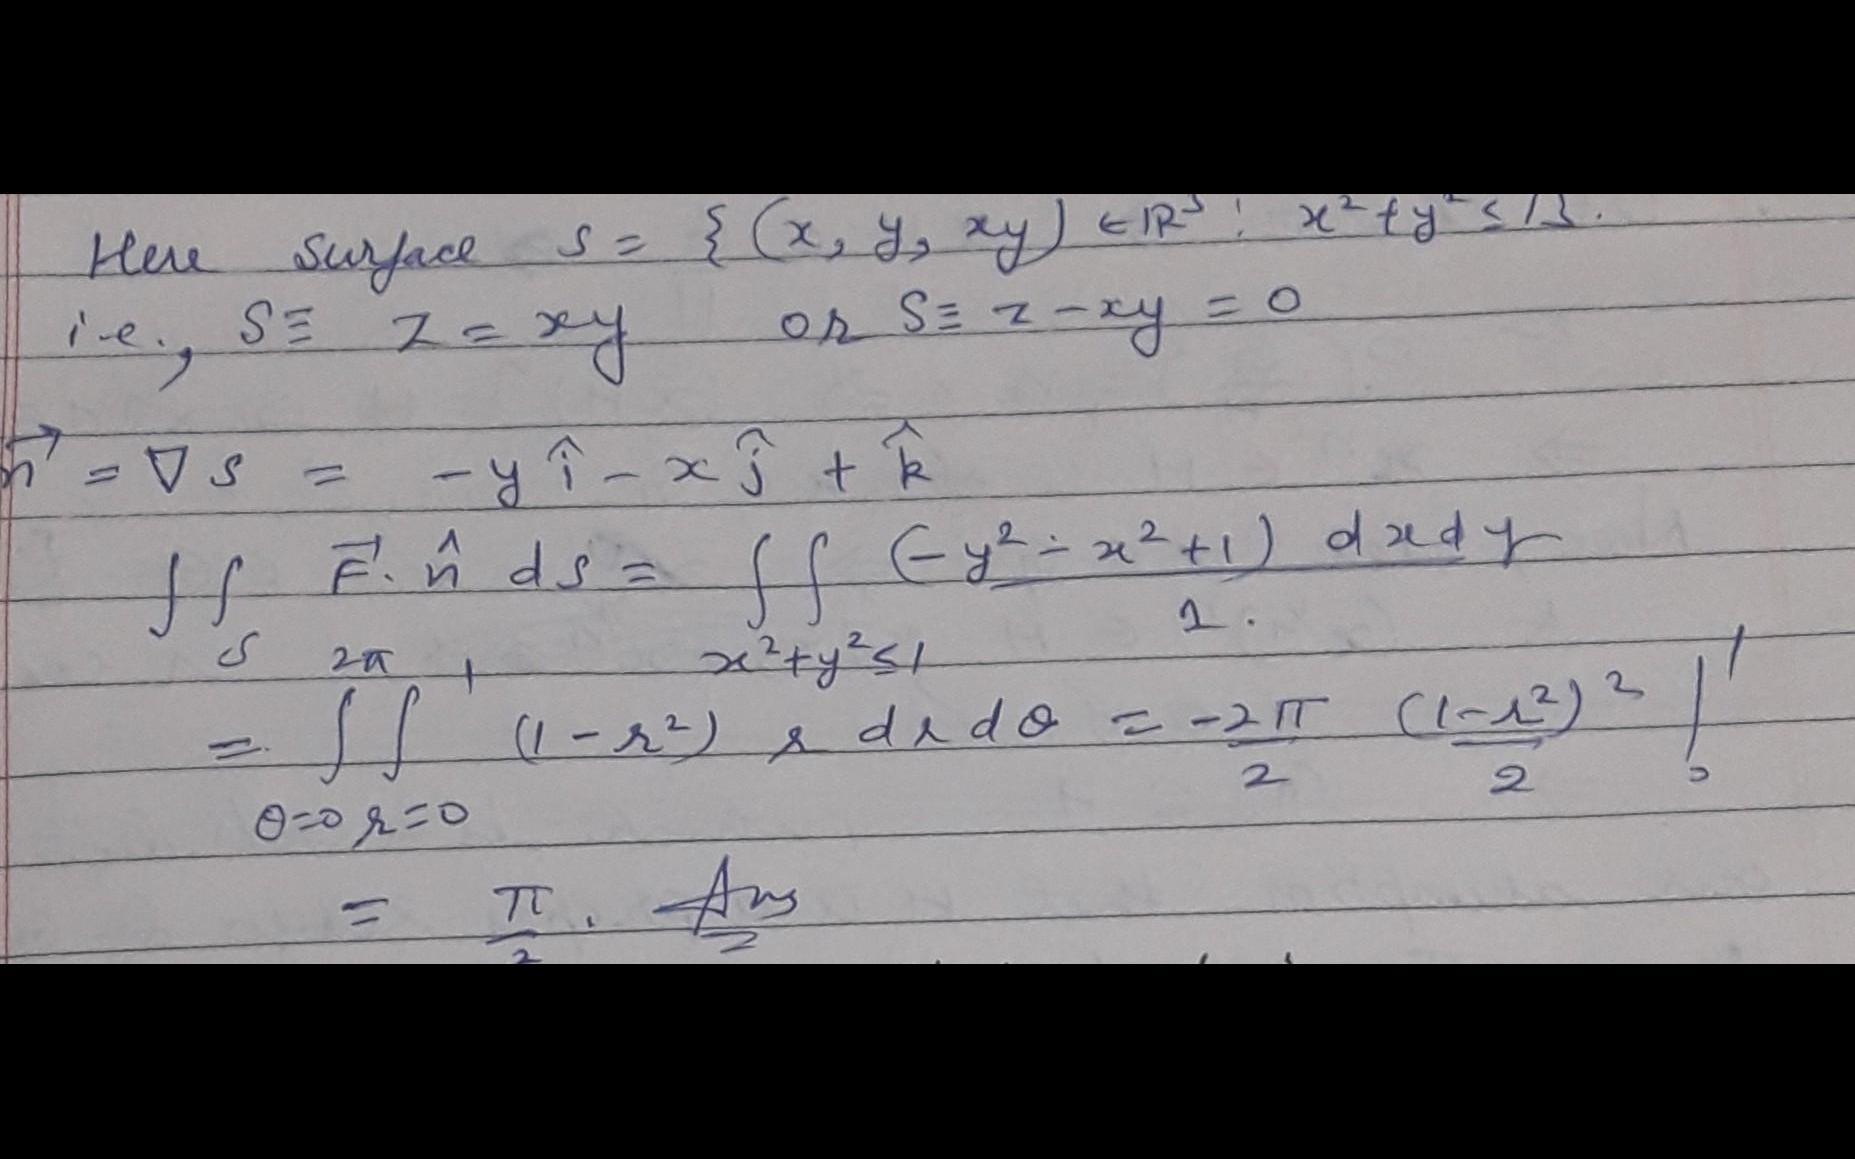 Here surface S = { (x, y, xy) ∈ ℝ³ : x² + y² ≤ 1}.
i.e., S ≡ z = xy or S ≡ z - xy = 0
n⃗ = ∇S = -y î - x ĵ + k̂
∫∫_S F⃗. n̂ ds = ∫∫_{x²+y²≤1} (-y² - x² + 1) dxdy / 1.
= ∫_{θ=0}^{2π} ∫_{r=0}^{1} (1 - r²) r dr dθ = -2π/2 (1-r²)²/2 |_0^1
= π/2. Ans